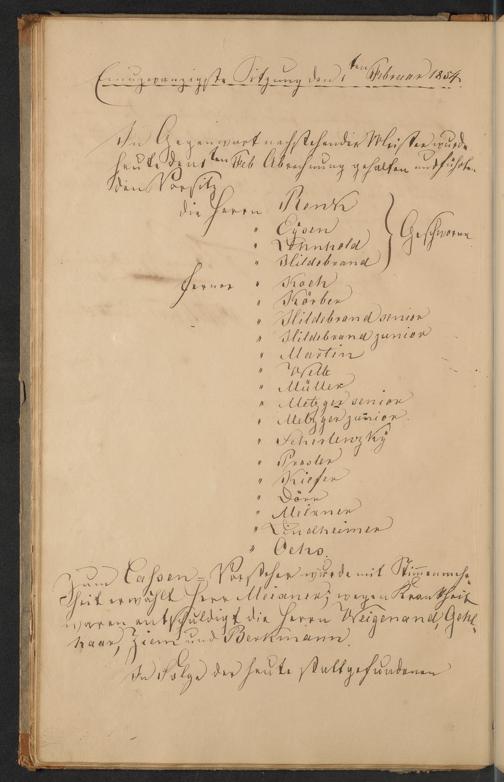 Einundzwanzigste Sitzung den 1ten Februar 1854.
In Gegenwart nachstehender Meister wurde
heute den 1ten Feb Abrechnung gehalten und führten
den Vorsitz
die Herrn
" Eysen
" Lehnhold
" Hildebrand
Geschworne
ferner " Koch
" Körber
" Hildebrand senior
" Hildebrand junior
" Martin
" Welb
" Müller
" Metzger senior
" Metzger junior.
"
" Prester
" Kiefer
" Dörr
" Meixner
" Lindheimer
" Ochs.
Zum Cassen-Vorsteher wurde mit Stimmenmehr-
heit erwählt Herr Meixner; wegen Krankheit
waren entschuldigt die Herrn Weigenand Gehl-
haar, Ziem und Berkmann.
In Folge der heute stattgefundenen